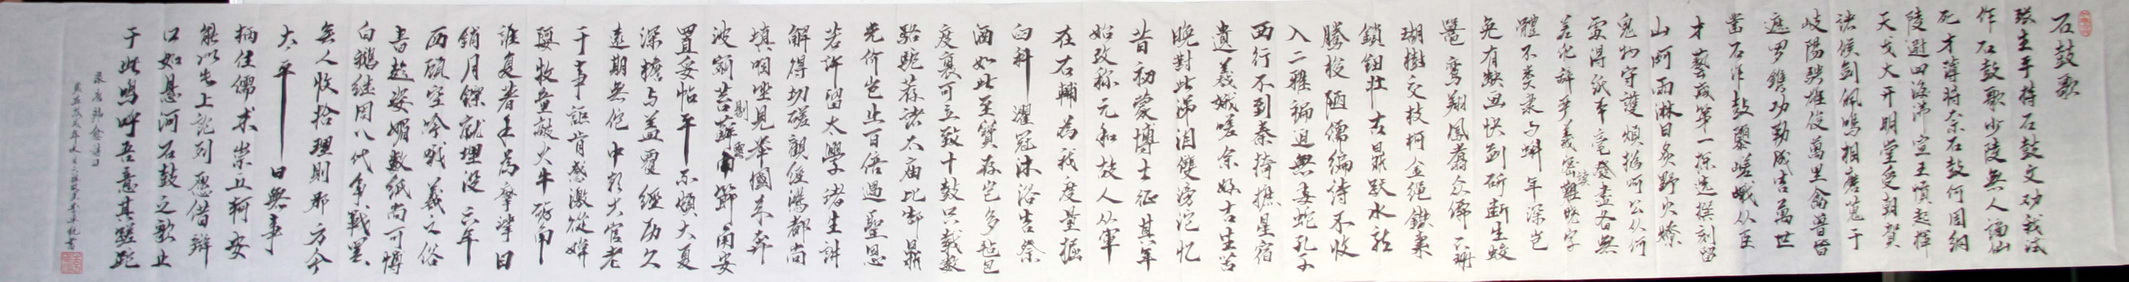 石鼓歌
張生手持石鼓文劝我试
作石鼓歌少陵無人谪仙
死才薄將奈石鼓何周纲
陵遲四海沸宣王憤起揮
天戈大开明堂受朝賀
诸侯剑佩鳴相磨蒐于
岐陽骋雄俊萬里禽兽皆
遮罗镌功勒成告萬世
凿石作鼓隳嵯峨从臣
才藝咸第一揀选撰刻留
山阿雨淋日炙野火燎
鬼物守護煩撝呵公从何
處得纸本毫发盡备無
差訛辞严義密讀難曉字
體不类隶与蝌年深岂
免有缺画快剑斫斷生蛟
鼉鸾翔凤翥众仙下珊
瑚樹交枝柯金绳鐵索
鎖鈕壮古鼎跃水龙
騰梭陋儒编诗不收
入二雅褊迫無委蛇孔子
西行不到秦掎摭星宿
遺羲娥嗟余好古生苦
晚對此涕泪雙滂沱忆
昔初蒙博士征其年
始改称元和故人从軍
在右輔為我度量掘
臼科濯冠沐浴告祭
酒如此至寶存岂多毡包
席裹可立致十鼓只载数
駱駝荐诸太廟比郜鼎
光价岂止百倍過聖恩
若許留太學诸生讲
解得切磋觀經鴻都尚
填咽坐見举國来奔
波剜苔剔蘚露節角安
置妥帖平不頗大夏
深檐与蓋覆經历久
遠期無佗中朝大官老
于事詎肯感激從媕
婀牧童敲火牛砺角
誰复著手為摩挲日
銷月鑠就埋没六年
西顾空吟哦羲之俗
書趁姿媚數紙尚可博
白鵝继周八代争戰罢
無人收拾理則那方今
太平日無事
柄任儒术崇丘軻安
能以此上论列愿借辯
口如悬河石鼓之歌止
于此嗚呼吾意其蹉跎
录唐韩愈